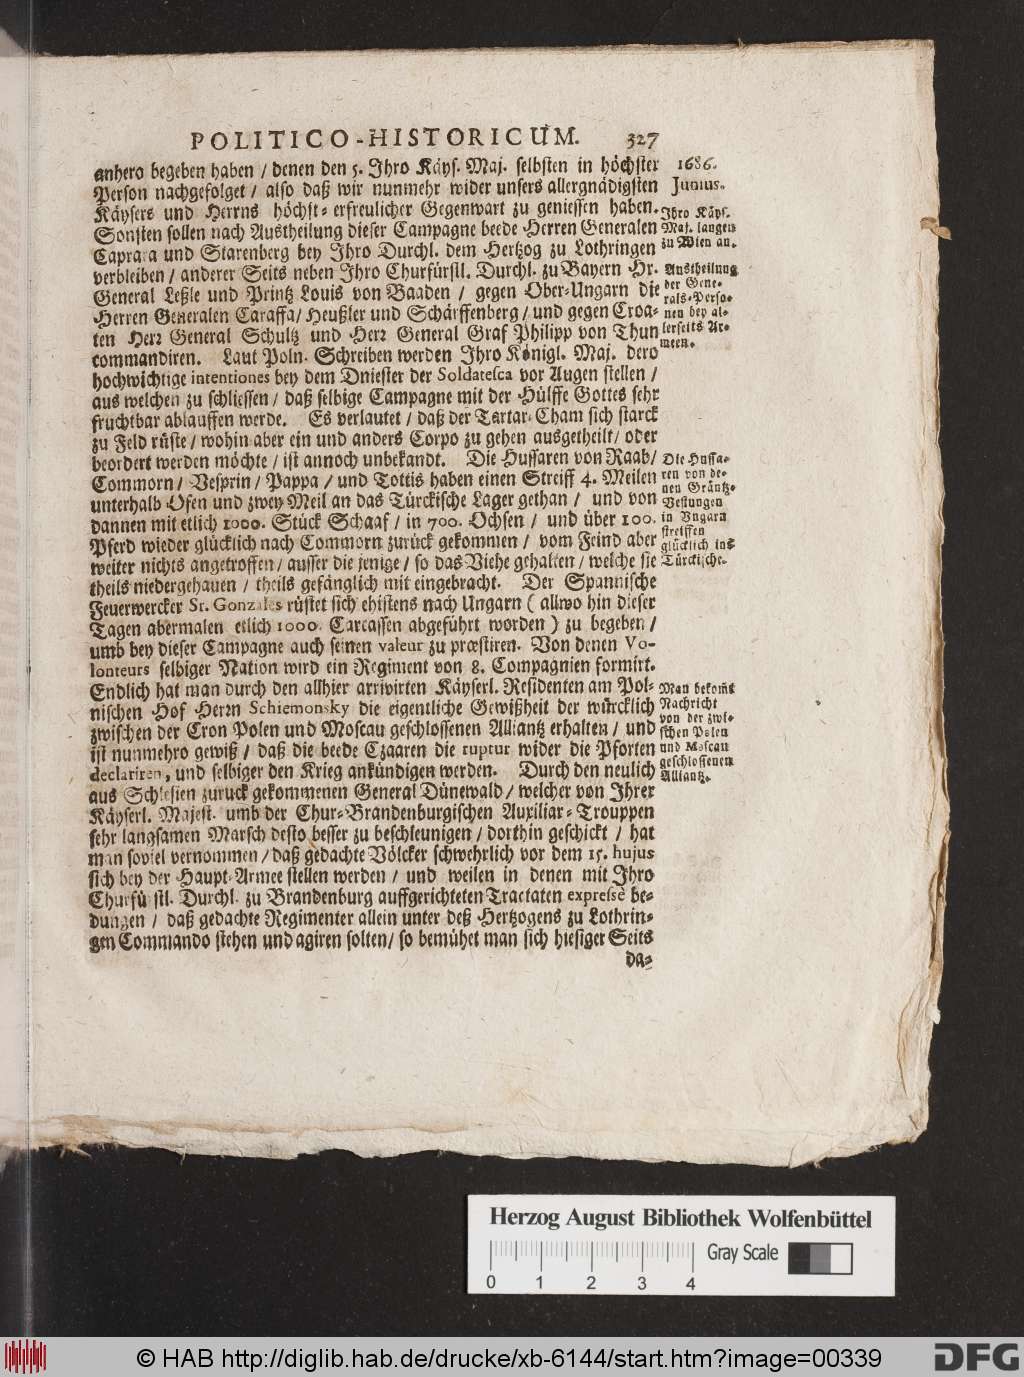 POLITICO-HISTORICUM. 327
anhero begeben haben / denen den 5. Ihro Käys. Maj. selbsten in höchster
Person nachgefolget / also daß wir nunmehr wider unsers allergnädigsten
Käysers und Herrns höchst-erfreulicher Gegenwart zu geniessen haben.
Sonsten sollen nach Austheilung dieser Campagne beede Herren Generalen
Caprara und Starenberg bey Ihro Durchl. dem Hertzog zu Lothringen
verbleiben / anderer Seits neben Ihro Churfürstl. Durchl. zu Bayern Hr.
General Leßle und Printz Louis von Baaden / gegen Ober-Ungarn die
Herren Generalen Caraffa / Heußler und Schärffenberg / und gegen Croa-
ten Herr General Schultz und Herr General Graf Philipp von Thun
commandiren. Laut Poln. Schreiben werden Ihro Königl. Maj. dero
hochwichtige intentiones bey dem Dniester der Soldatesca vor Augen stellen /
aus welchen zu schliessen / daß selbige Campagne mit der Hülffe Gottes sehr
fruchtbar ablauffen werde. Es verlautet / daß der Tartar-Cham sich starck
zu Feld rüste / wohin aber ein und anders Corpo zu gehen ausgetheilt / oder
beordert werden möchte / ist annoch unbekandt. Die Hussaren von Raab /
Commorn / Vesprin / Pappa / und Tottis haben einen Streiff 4. Meilen
unterhalb Ofen und zwey Meil an das Türckische Lager gethan / und von
dannen mit etlich 1000. Stück Schaaf / in 700. Ochsen / und über 100.
Pferd wieder glücklich nach Commorn zurück gekommen / vom Feind aber
weiter nichts angetroffen / ausser die jenige / so das Viehe gehalten / welche sie
theils niedergehauen / theils gefänglich mit eingebracht. Der Spannische
Feuerwercker Sr. Gonzales rüstet sich ehistens nach Ungarn ( allwo hin dieser
Tagen abermalen etlich 1000. Carcassen abgeführt worden ) zu begeben /
umb bey dieser Campagne auch seinen valeur zu præstiren. Von denen Vo-
lonteurs selbiger Nation wird ein Regiment von 8. Compagnien formirt.
Endlich hat man durch den allhier arrivirten Käyserl. Residenten am Pol-
nischen Hof Herrn Schiemonsky die eigentliche Gewißheit der würcklich
zwischen der Cron Polen und Moscau geschlossenen Alliantz erhalten / und
ist nunmehro gewiß / daß die beede Czaaren die ruptur wider die Pforten
declariren, und selbiger den Krieg ankündigen werden. Durch den neulich
aus Schlesien zuruck gekommenen General Dünewald / welcher von Ihrer
Käyserl. Majest. umb der Chur-Brandenburgischen Auxiliar-Trouppen
sehr langsamen Marsch desto besser zu beschleunigen / dorthin geschickt / hat
man soviel vernommen / daß gedachte Völcker schwehrlich vor dem 15. hujus
sich bey der Haupt-Armee stellen werden / und weilen in denen mit Ihro
Churfürstl. Durchl. zu Brandenburg auffgerichteten Tractaten expresse be-
dungen / daß gedachte Regimenter allein unter deß Hertzogens zu Lothrin-
gen Commando stehen und agiren solten / so bemühet man sich hiesiger Seits
da-
1686.
Junius.
Ihro Käys.
Maj. langen
zu Wien an.
Austheilung
der Gene-
rals-Perso-
nen bey al-
lerseits Ar-
meen.
Die Hussa-
ren von de-
nen Gräntz-
Vestungen
in Ungarn
streiffen
glücklich ins
Türckische.
Man bekom̃t
Nachricht
von der zwi-
schen Polen
und Moscau
geschlossenen
Alliantz.
Herzog August Bibliothek Wolfenbüttel
Gray Scale
0 1 2 3 4
© HAB http://diglib.hab.de/drucke/xb-6144/start.htm?image=00339
DFG